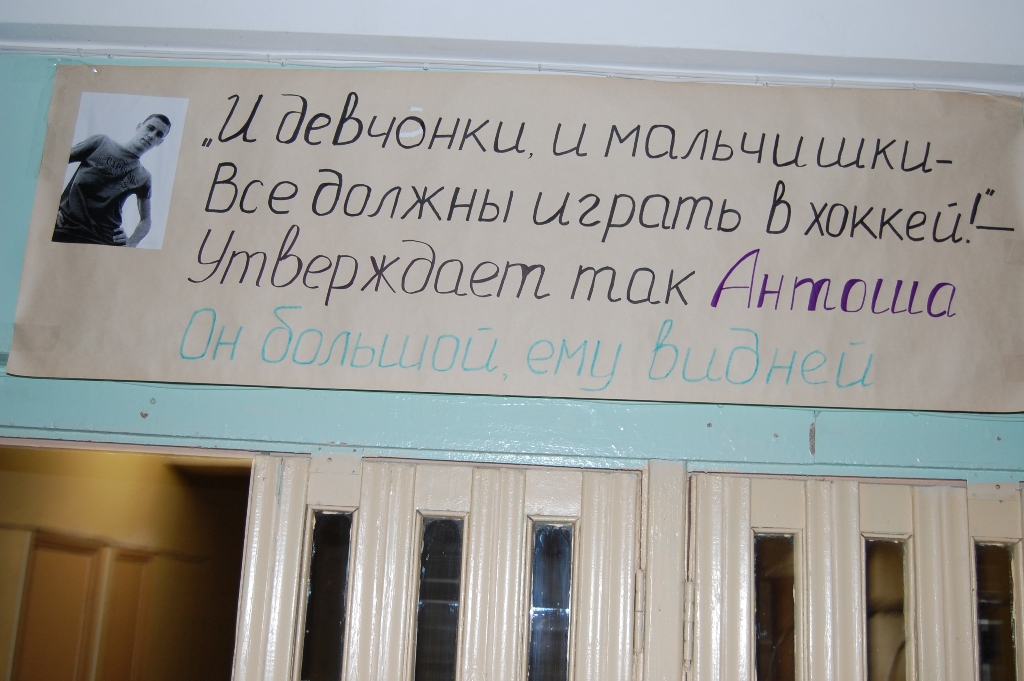 „И девчонки, и мальчишки-
Все должны играть в хоккей!"-
Утверждает так Антоша
Он большой, ему видней